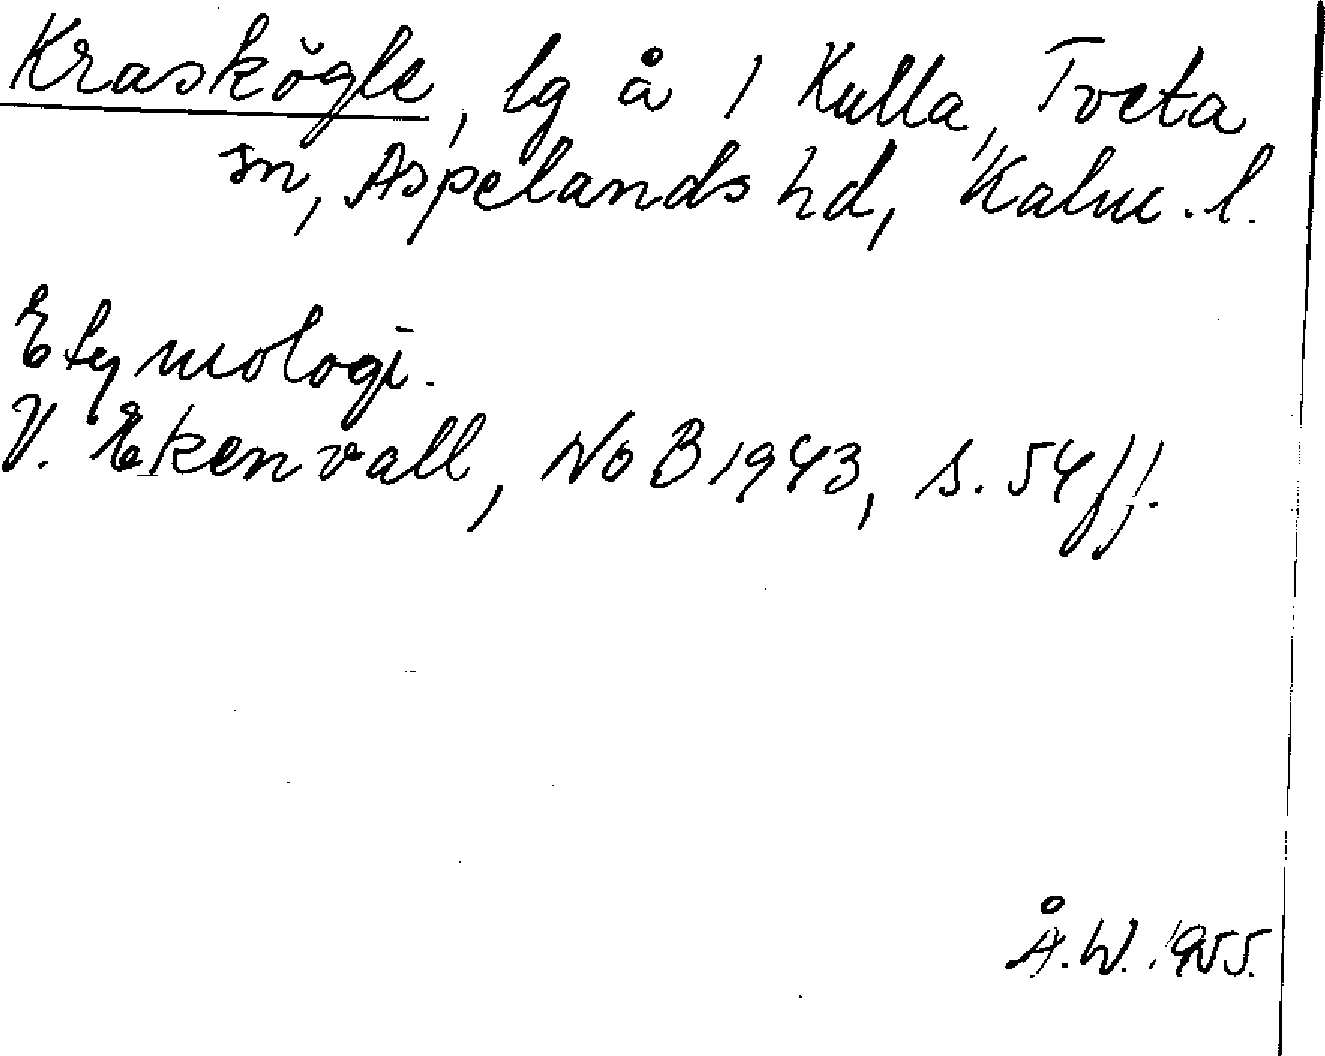 Kraskögle, lg å 1 Kulla, Tveta
sn, Aspelands hd, Kalm. l.
Etymologi.
V. Ekenvall, NoB 1943, s. 54 ff.
Å.W. 1955.